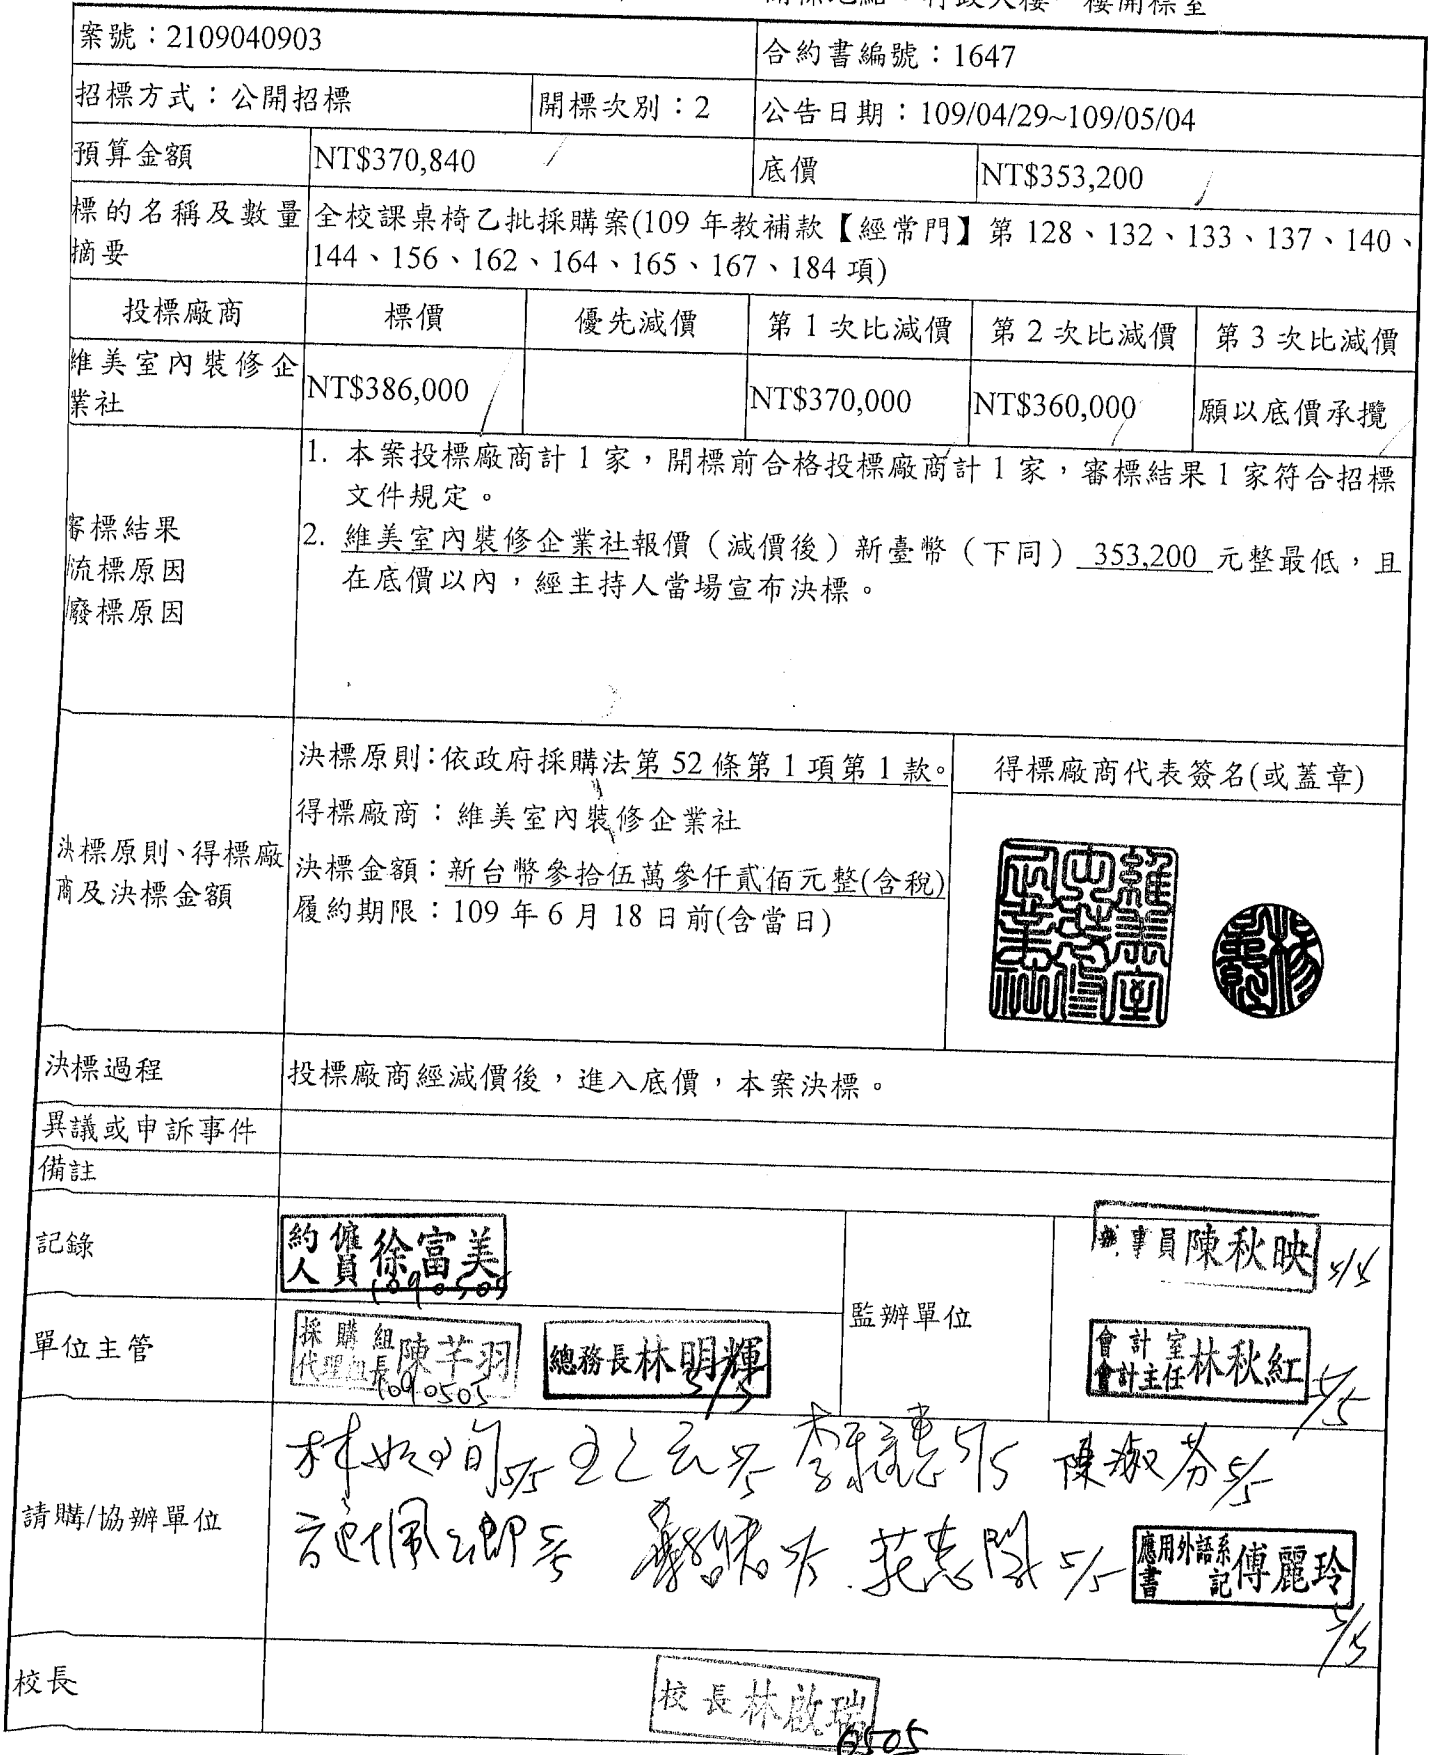 案號：2109040903
合約書編號：1647
招標方式：公開招標
開標次別：2
公告日期：109/04/29~109/05/04
預算金額
NT$370,840
底價
NT$353,200
標的名稱及數量
摘要
全校課桌椅乙批採購案(109 年教補款【經常門】第 128、132、133、137、140、
144、156、162、164、165、167、184 項)
投標廠商
標價
優先減價
第 1 次比減價
第 2 次比減價
第 3 次比減價
維美室內裝修企
業社
NT$386,000
NT$370,000
NT$360,000
願以底價承攬
審標結果
流標原因
廢標原因
1. 本案投標廠商計 1 家，開標前合格投標廠商計 1 家，審標結果 1 家符合招標
文件規定。
2. 維美室內裝修企業社報價（減價後）新臺幣（下同） 353,200 元整最低，且
在底價以內，經主持人當場宣布決標。
決標原則、得標廠
商及決標金額
決標原則：依政府採購法第 52 條第 1 項第 1 款。
得標廠商：維美室內裝修企業社
決標金額：新台幣參拾伍萬參仟貳佰元整(含稅)
履約期限：109 年 6 月 18 日前(含當日)
得標廠商代表簽名(或蓋章)
決標過程
投標廠商經減價後，進入底價，本案決標。
異議或申訴事件
備註
記錄
約僱
人員
徐富美
1090505
監辦單位
辦事員陳秋映
5/5
單位主管
採購組
代理組長
陳芊羽
1090505
總務長林明輝
5/5
會計室
會計主任
林秋紅
5/5
請購/協辦單位
5/5
5/5
5/5
陳淑芬 5/5
5/5
5/5
應用外語系
書記
傅麗玲
5/5
校長
校長林啟瑞
0505